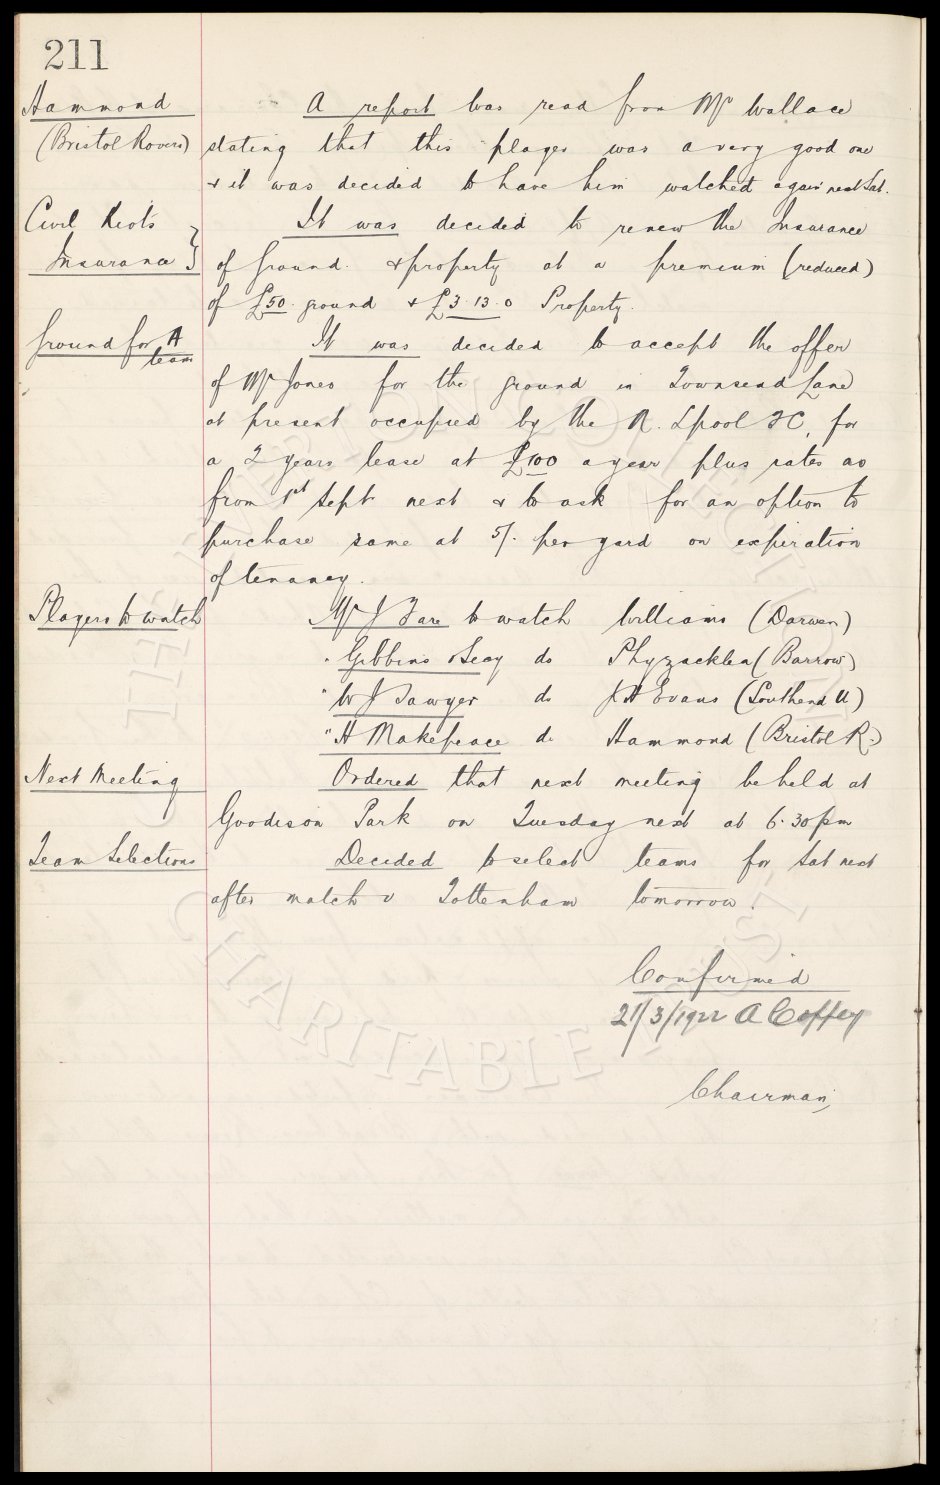 211
Hammond
(Bristol Rovers)
A report was read from Mr Wallace
stating that this player was a very good one
& it was decided to have him watched again next Sat.
Civil Riots
Insurance }
It was decided to renew the Insurance
of ground & property at a premium (reduced)
of £50. ground & £3.13.0 Property.
Ground for A
team
It was decided to accept the offer
of Mr Jones for the ground in Townsend Lane
at present occupied by the R. Lpool FC, for
a 2 years lease at £100 a year plus rates as
from 1st Sept next & to ask for an option to
purchase same at 5/- per yard on expiration
of tenancy.
Players to watch
Mr J Fare to watch Williams (Darwen)
" Gibbins & Leay do Phyzacklea (Barrow)
" W J Sawyer do J H Evans (Southend U)
" H Makepeace do Hammond (Bristol R.)
Next Meeting
Ordered that next meeting be held at
Goodison Park on Tuesday next at 6.30pm
Team Selections
Decided to select teams for Sat next
after match v Tottenham tomorrow.
Confirmed
21/3/1922 A Coffey
Chairman,
THE EVERTON COLLECTION
CHARITABLE TRUST